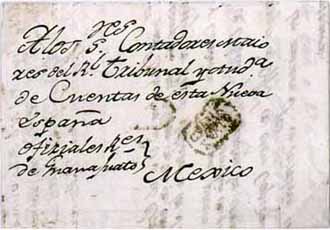 A los S.res Contadores Maio
res del R.l Tribunal y Aud.a
de Cuentas de esta Nueva
España
ofiziales R.es
de Guanajuato
Mexico